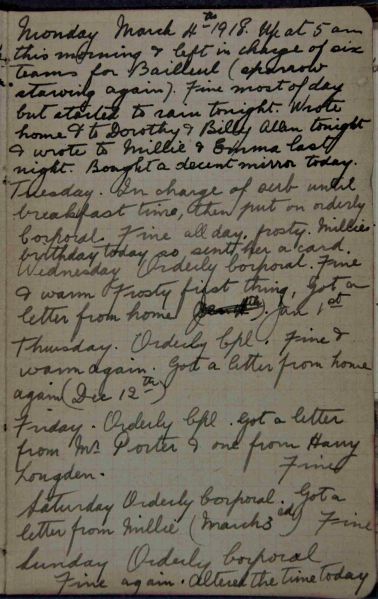 Monday March 4th 1918. Up at 5 am
this morning & left in charge of six
teams for Bailleul (sparrow
starving again). Fine most of day
but started to rain tonight. Wrote
home & to Dorothy & Billy Allan tonight
& wrote to Millie & Emma last
night. Bought a decent mirror today.
Tuesday. In charge of sub until
breakfast time, then put on orderly
Corporal. Fine all day, frosty. Millies
birthday today so sent her a card.
Wednesday Orderly Corporal. Fine
& warm Frosty first thing, Got a
letter from home Jan 1st
Thursday. Orderly Cpl. Fine &
warm again. Got a letter from home
again (Dec 12th)
Friday. Orderly Cpl. Got a letter
from Mr Porter & one from Harry
Longden. Fine
Saturday Orderly Corporal. Got a
letter from Millie (March 3rd) Fine
Sunday Orderly Corporal
Fine again. Altered the time today